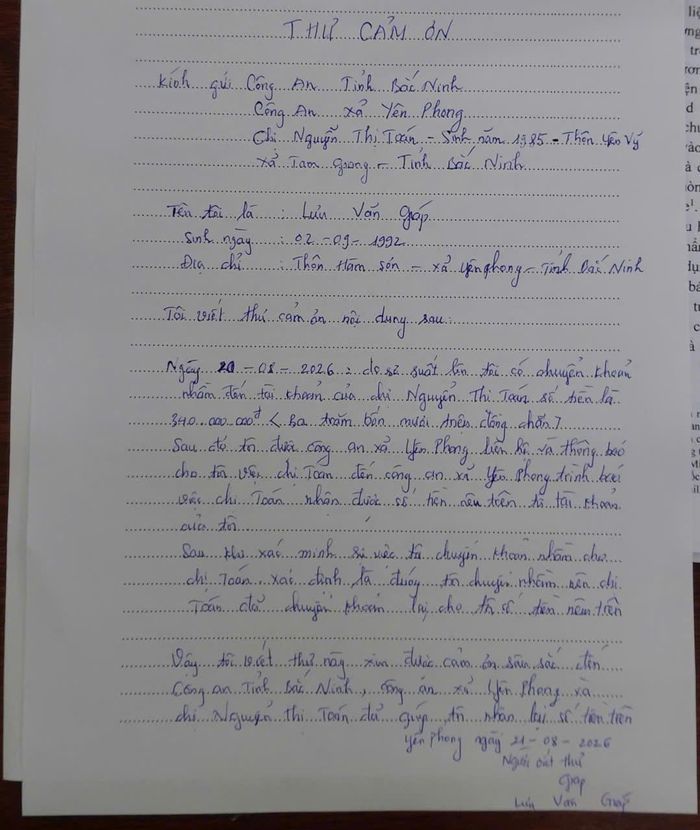 THƯ CẢM ƠN
Kính gửi Công An Tỉnh Bắc Ninh
Công An xã Yên Phong
Chị Nguyễn Thị Toán - Sinh năm 1985 - Thôn Yên Vỹ
xã Tam Giang - Tỉnh Bắc Ninh
Tên tôi là : Lưu Văn Gióp
Sinh ngày : 02 - 09 - 1992
Địa chỉ : Thôn Hàm Sơn - xã Yên Phong - Tỉnh Bắc Ninh
Tôi viết thư cảm ơn nội dung sau:
Ngày 20 - 08 - 2026 : do sơ suất lên tôi có chuyển khoản
nhầm đến tài khoản của chị Nguyễn Thị Toán số tiền là
340.000.000đ < Ba trăm bốn mươi triệu đồng chẵn >
Sau đó tôi được công an xã Yên Phong liên hệ và thông báo
cho tôi việc chị Toán đến công an xã Yên Phong trình báo
việc chị Toán nhận được số tiền nêu trên từ tài khoản
của tôi
Sau khi xác minh sự việc tôi chuyển khoản nhầm cho
chị Toán, xác định là đúng tôi chuyển nhầm nên chị
Toán đã chuyển khoản lại cho tôi số tiền nêu trên
Vậy tôi viết thư này xin được cảm ơn sâu sắc đến
Công an Tỉnh Bắc Ninh, công an xã Yên Phong và
chị Nguyễn Thị Toán đã giúp tôi nhận lại số tiền trên
Yên Phong ngày 21 - 08 - 2026
Người viết thư
Lưu Văn